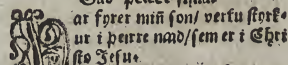 ar fyrer miñ son/ vertu styrk-
ur i þeirre naad/sem er i Christo
sto Jesu.